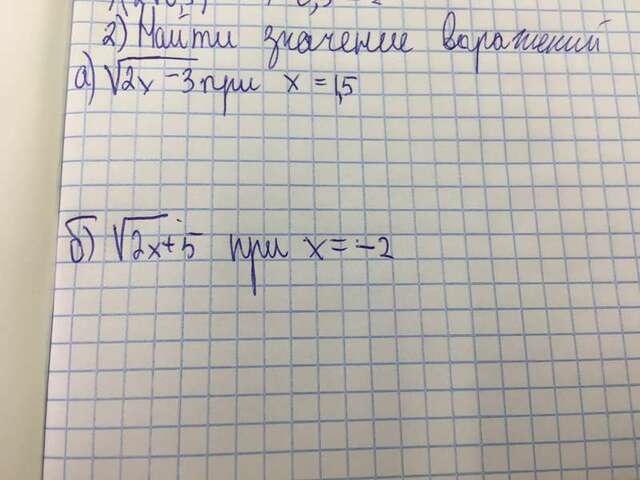 2) Найти значение выражений
а) √2x - 3 при x = 1,5
б) √2x+5 при x = -2